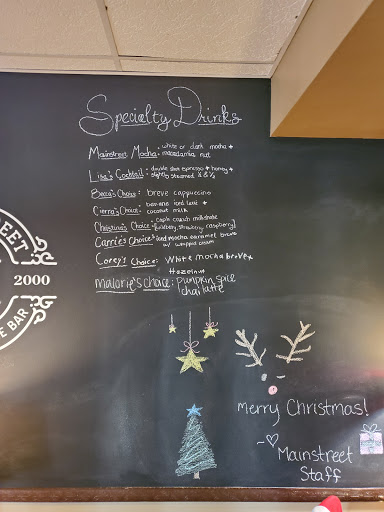 Specialty Drinks
Mainstreet Mocha: white or dark mocha +
macadamia nut
Lisa's Cocktail: double shot espresso + honey +
slightly steamed ½ & ½
Becca's Choice: breve cappuccino
Cierra's Choice: banana iced latte +
coconut milk
Christina's Choice: capp crunch milkshake
(wildberry, strawberry, raspberry)
Carrie's Choice: iced mocha caramel breve
w/ whipped cream
Corey's Choice: White mocha breve +
Hazelnut
Malorie's Choice: pumpkin spice
chai latte
REET
2000
E BAR
Merry Christmas!
~♡ Mainstreet
Staff